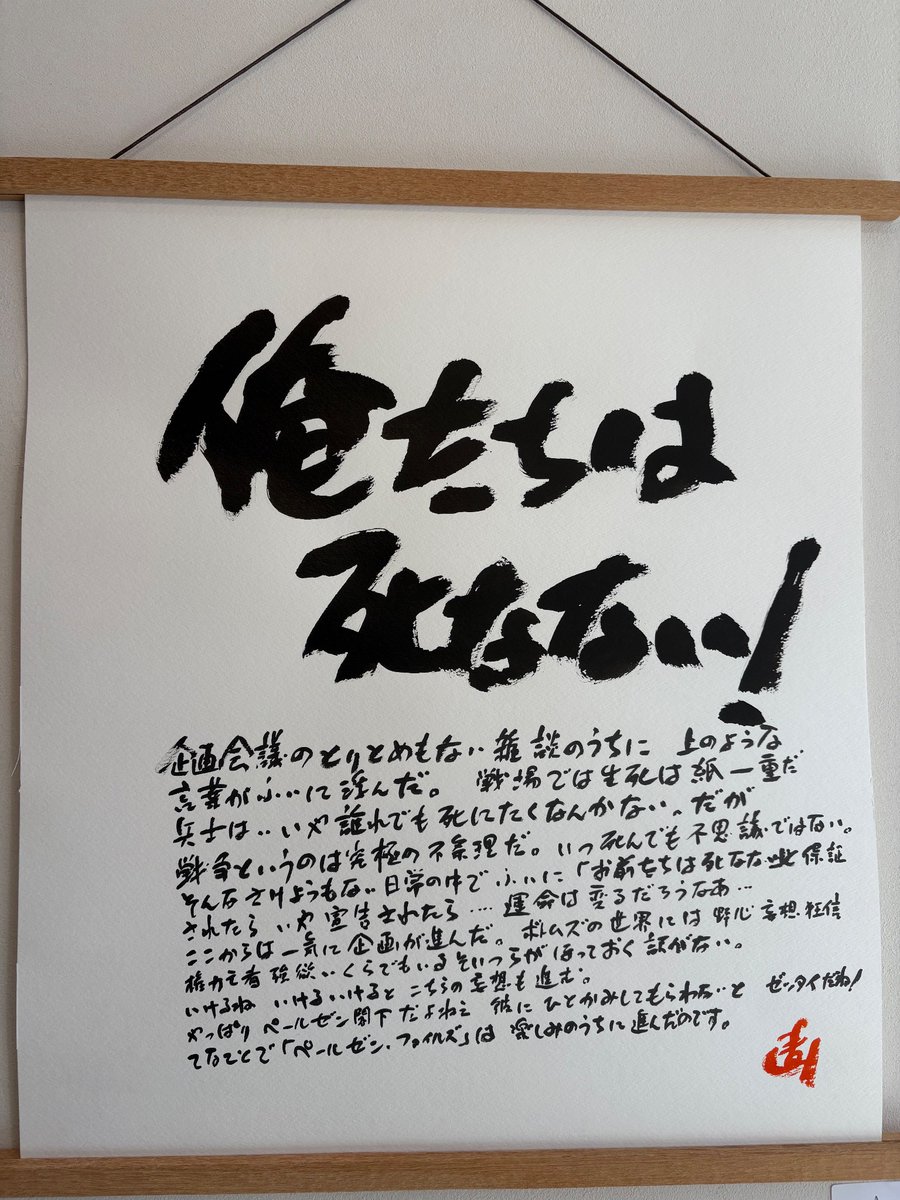 俺たちは
死なない!
企画会議のとりとめもない雑談のうちに 上のような
言葉がふいに浮んだ。 戦場では生死は紙一重だ
兵士は‥いや誰れでも死にたくなんかない。だが
戦争というのは究極の不条理だ。いつ死んでも不思議ではない。
そんなさけようもない日常の中で ふいに「お前たちは死なない」と保証
されたら いや宣告されたら…. 運命は変るだろうなあ…
ここからは一気に企画が進んだ。ボトムズの世界には 野心 妄想 狂信
権力者 強欲 いくらでもいるそいつらがほっておく訳がない。
いけるね いけるいけると こちらの妄想も進む。
やっぱり ペールゼン閣下だよねえ 彼にひとかみしてもらわないと ゼッタイだね!
てなことで「ペールゼン・ファイルズ」は 楽しみのうちに進んだのです。